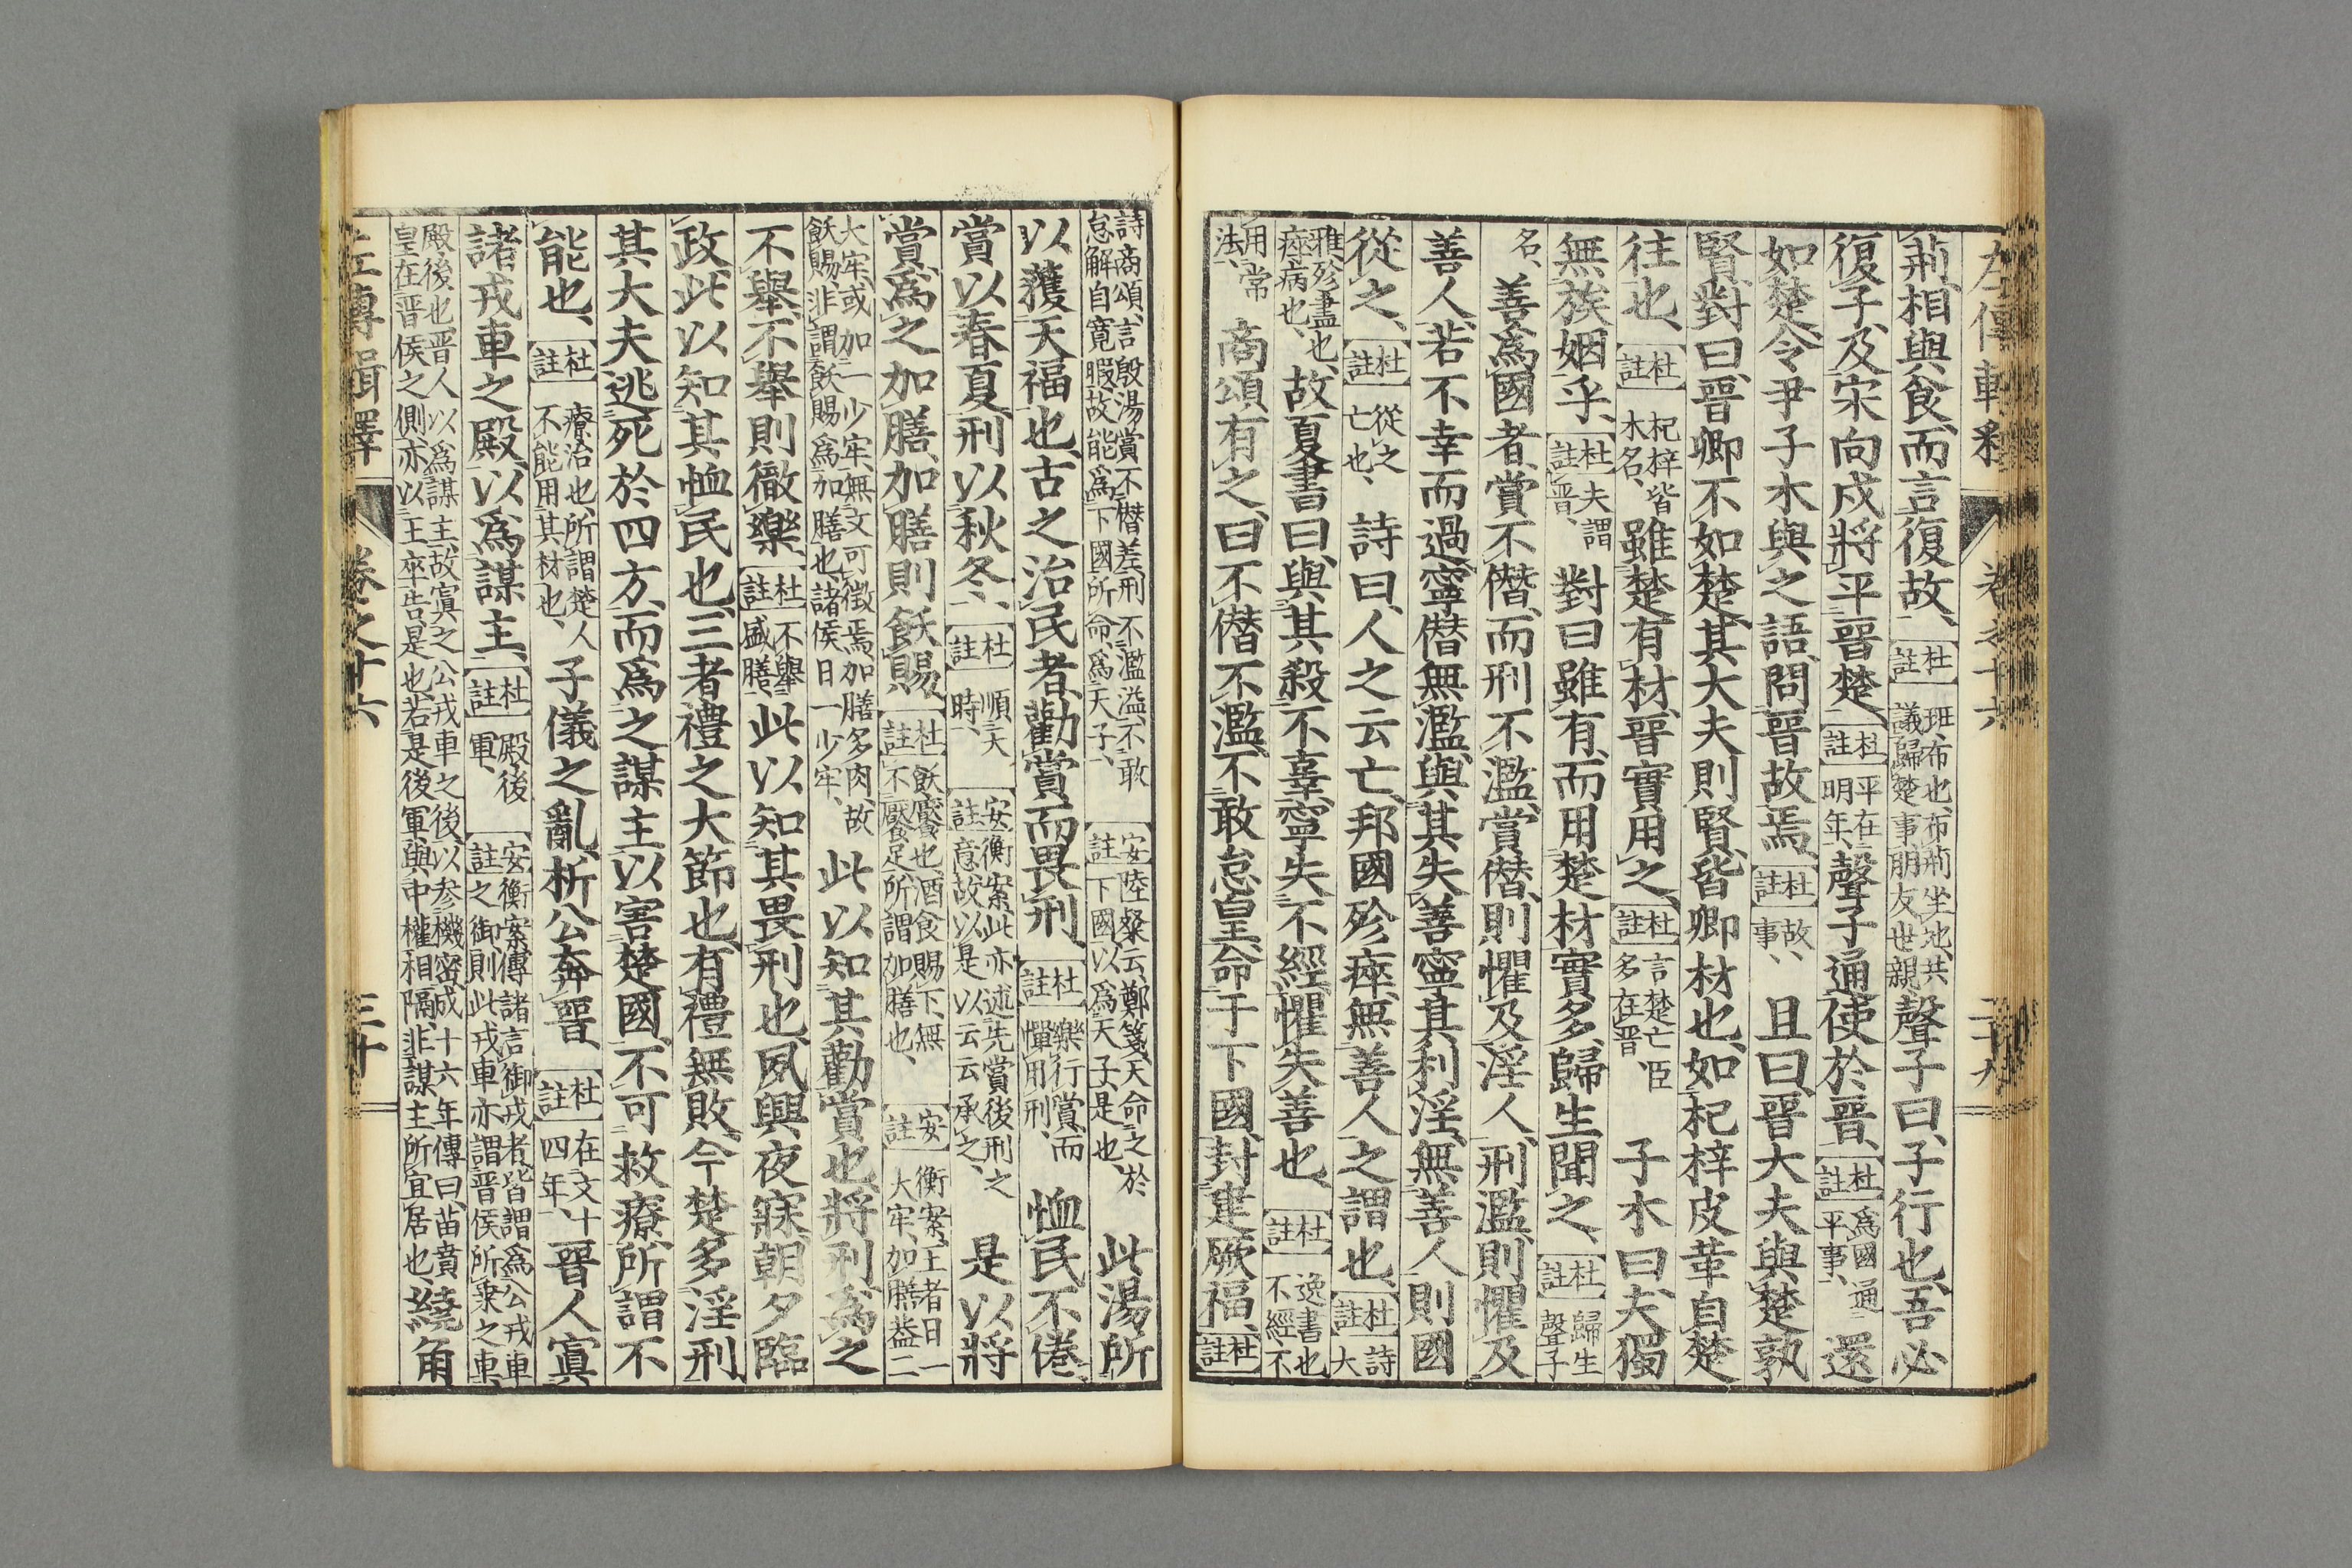 左傳輯釋 卷之十六 二十九
荊、相與食、而言復故、杜註班、布也、布荊坐地、共議歸楚事、朋友世親、聲子曰、子行也、吾必
復子、及宋向戌將平晉楚、杜註平在明年、聲子通使於晉、杜註爲國通平事、還
如楚、令尹子木與之語、問晉故焉、杜註故、事、且曰、晉大夫與楚孰
賢、對曰、晉卿不如楚、其大夫則賢、皆卿材也、如杞梓皮革自楚
往也、杜註杞梓皆木名、雖楚有材、晉實用之、杜註言楚亡臣多在晉、子木曰、夫獨
無族姻乎、杜註夫謂晉、對曰、雖有、而用楚材實多、歸生聞之、杜註歸生聲子
名、善爲國者、賞不僭、而刑不濫、賞僭、則懼及淫人、刑濫、則懼及
善人、若不幸而過、寧僭無濫、與其失善、寧其利淫、無善人、則國
從之、杜註從之亡也、詩曰、人之云亡、邦國殄瘁、無善人之謂也、杜註詩大
雅、殄盡也、瘁病也、故夏書曰、與其殺不辜、寧失不經、懼失善也、杜註逸書也、不經不
用常法、商頌有之、曰、不僭不濫、不敢怠皇、命于下國、封建厥福、杜註
詩商頌、言殷湯賞不僭差、刑不濫溢、不敢怠解自寬暇、故能爲下國所命爲天子、安註陸粲云、鄭箋、天命之於下國、以爲天子是也、此湯所
以獲天福也、古之治民者、勸賞而畏刑、杜註樂行賞、而憚用刑、恤民不倦、
賞以春夏、刑以秋冬、杜註順天時、安註衡案、此亦述先賞後刑之意、故以是以云云承之、是以將
賞、爲之加膳、加膳則飫賜、杜註飫饜也、酒食賜下、無不饜足、所謂加膳也、安註衡案、王者日一大牢、加膳益二
大牢、或加一少牢、無文可徵焉、加膳多肉、故飫賜、非謂飫賜爲加膳也、諸侯日一少牢、此以知其勸賞也、將刑、爲之
不舉、不舉則徹樂、杜註不舉盛膳、此以知其畏刑也、夙興夜寐、朝夕臨
政、此以知其恤民也、三者禮之大節也、有禮無敗、今楚多淫刑
其大夫逃死於四方、而爲之謀主、以害楚國、不可救療、所謂不
能也、杜註療治也、所謂楚人不能用其材也、子儀之亂、析公奔晉、杜註在文十四年、晉人寘
諸戎車之殿、以爲謀主、杜註殿後軍、安註衡案、傳諸言御戎者、皆謂爲公戎車之御、則此戎車亦謂晉侯所乘之車、
殿、後也、晉人以爲謀主、故寘之公戎車之後、以參機密、成十六年傳曰、苗賁皇在晉侯之側、亦以王卒告是也、若是後軍、與中權相隔、非謀主所宜居也、繞角
左傳輯釋 卷之十六 三十